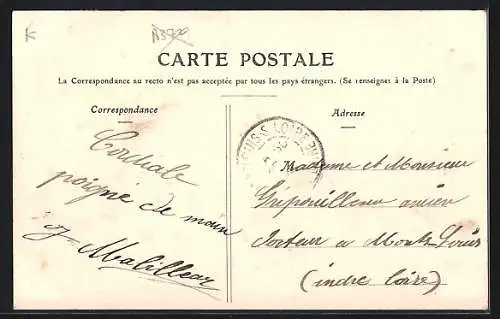 K
CARTE POSTALE
La Correspondance au recto n'est pas acceptée par tous les pays étrangers. (Se renseigner à la Poste)
Correspondance
Cordiale
poigné de main
Adresse
Madame et Monsieur
ancien
a Montlouis
(indre Loire)